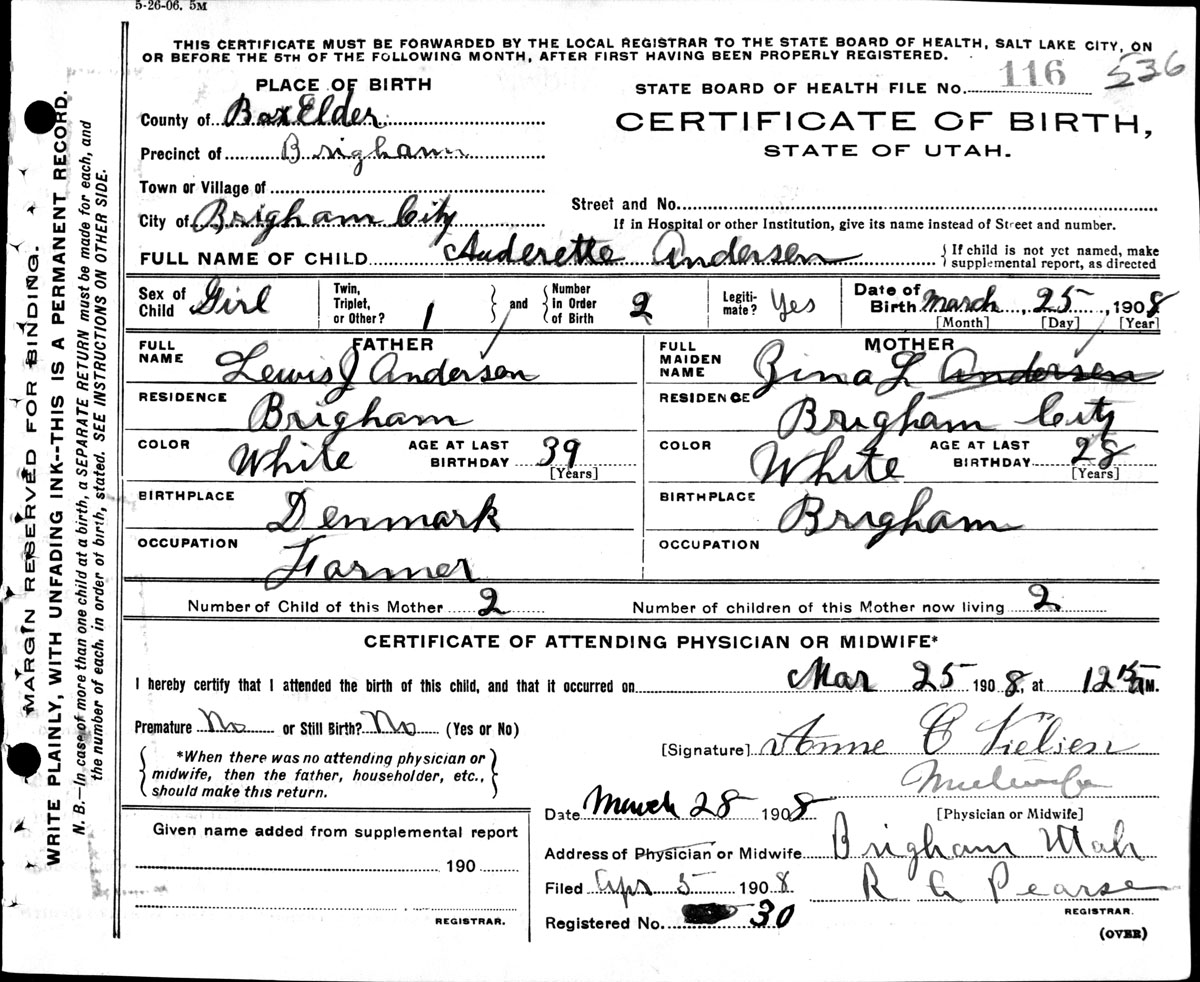 5-26-06. 5M
THIS CERTIFICATE MUST BE FORWARDED BY THE LOCAL REGISTRAR TO THE STATE BOARD OF HEALTH, SALT LAKE CITY, ON
OR BEFORE THE 5TH OF THE FOLLOWING MONTH, AFTER FIRST HAVING BEEN PROPERLY REGISTERED.
116 536
PLACE OF BIRTH
STATE BOARD OF HEALTH FILE NO.
County of Box Elder
CERTIFICATE OF BIRTH,
Precinct of Brigham
STATE OF UTAH.
Town or Village of
Street and No.
City of Brigham City
If in Hospital or other Institution, give its name instead of Street and number.
FULL NAME OF CHILD Auderette Andersen
{ If child is not yet named, make
supplemental report, as directed
Sex of Child Girl
Twin, Triplet, or Other? 1 } and { Number in Order of Birth 2
Legiti-mate? Yes
Date of Birth March 25, 1908
[Month] [Day] [Year]
FATHER
FULL NAME Lewis J Andersen
RESIDENCE Brigham
COLOR White AGE AT LAST BIRTHDAY 39 [Years]
BIRTHPLACE Denmark
OCCUPATION Farmer
MOTHER
FULL MAIDEN NAME Zina L Andersen
RESIDENCE Brigham City
COLOR White AGE AT LAST BIRTHDAY 28 [Years]
BIRTHPLACE Brigham
OCCUPATION
Number of Child of this Mother 2 Number of children of this Mother now living 2
CERTIFICATE OF ATTENDING PHYSICIAN OR MIDWIFE*
I hereby certify that I attended the birth of this child, and that it occurred on Mar 25 1908, at 12 15 AM.
Premature No or Still Birth? No (Yes or No)
[Signature] Anne C Nielsen
*When there was no attending physician or
midwife, then the father, householder, etc.,
should make this return.
Midwife
[Physician or Midwife]
Date March 28 1908
Address of Physician or Midwife Brigham Utah
Filed Apr 5 1908 R G Pearse
REGISTRAR.
Registered No. 30
(OVER)
Given name added from supplemental report
190
REGISTRAR.
MARGIN RESERVED FOR BINDING.
WRITE PLAINLY, WITH UNFADING INK--THIS IS A PERMANENT RECORD.
N. B.—In case of more than one child at a birth, a SEPARATE RETURN must be made for each, and
the number of each, in order of birth, stated. SEE INSTRUCTIONS ON OTHER SIDE.